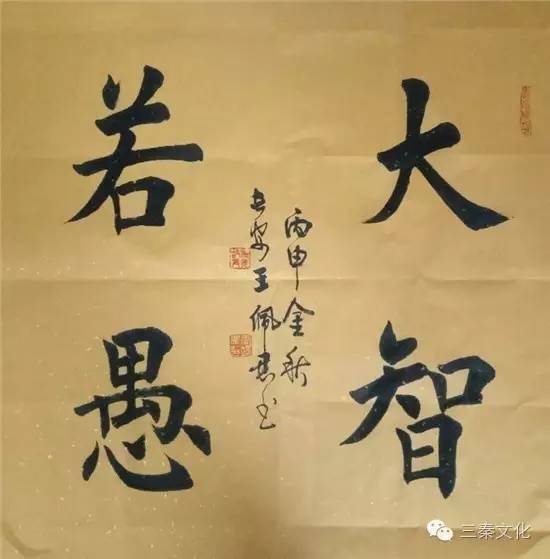 大智
若愚
丙申金秋
长安王佩君书
三秦文化